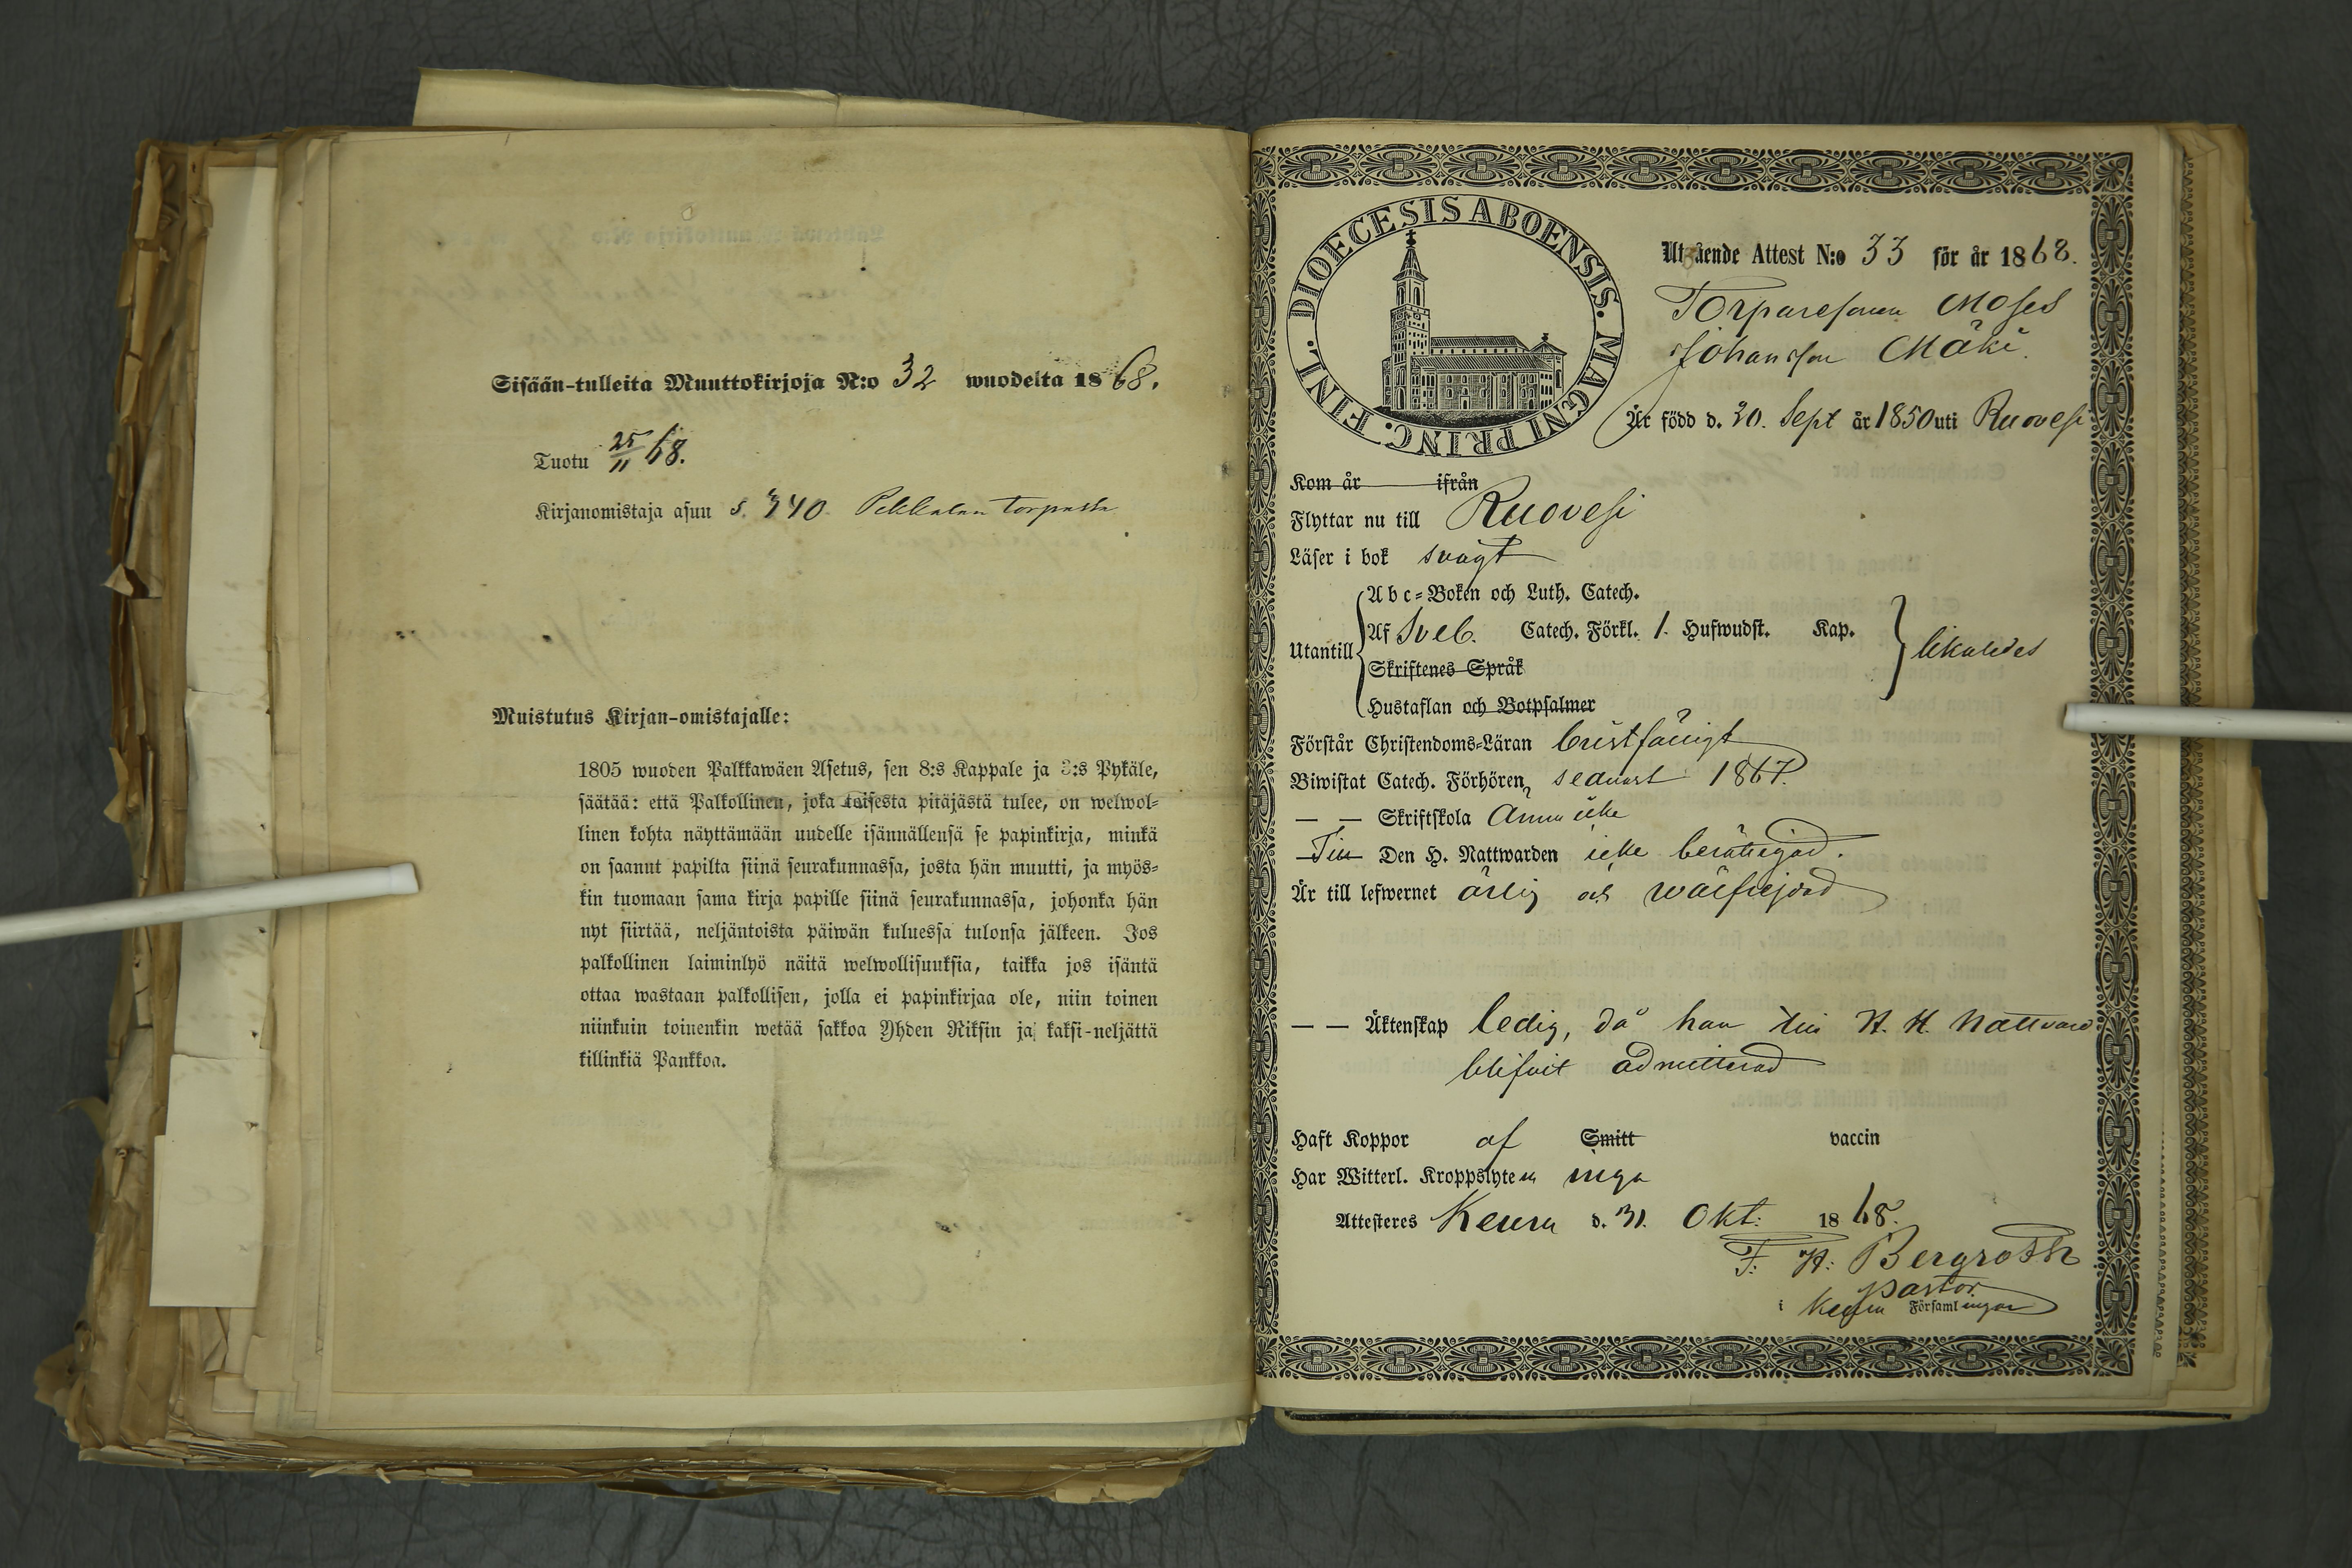 Sisään-tulleita Muuttokirjoja N:o 32 wuodelta 1868.
Tuotu 25/11 68.
Kirjanomistaja asuu S. 340 Pekkalan torpassa
Muistutus Kirjan-omistajalle:
1805 wuoden Palkkawäen Asetus, sen 8:s Kappale ja 3:s Pykäle,
säätää: että Palkollinen, joka toisesta pitäjästä tulee, on welwol-
linen kohta näyttämään uudelle isännällensä se papinkirja, minkä
on saanut papilta siinä seurakunnassa, josta hän muutti, ja myös-
kin tuomaan sama kirja papille siinä seurakunnassa, johonka hän
nyt siirtää, neljäntoista päiwän kuluessa tulonsa jälkeen. Jos
palkollinen laiminlyö näitä welwollisuuksia, taikka jos isäntä
ottaa wastaan palkollisen, jolla ei papinkirjaa ole, niin toinen
niinkuin toinenkin wetää sakkoa Yhden Riksin ja kaksi-neljättä
killinkiä Pankkoa.
DIOECESIS ABOENSIS. MAGNI PRINC. FINL.
Utgående Attest N:o 33 för år 1868.
Torparesonen Moses
Johansson Mäki
Är född d. 30. Sept år 1850 uti Ruovesi
Kom år ifrån
Flyttar nu till Ruovesi
Läser i bok svagt
Abc-Boken och Luth. Catech.
Utantill Af Sveb. Catech. Förkl. 1. Hufwudst. Kap. likaledes
Skriftenes Språk
Hustaflan och Botpsalmer
Förstår Christendoms-Läran bristfäligt
Biwistat Catech. Förhören, sednast 1867.
— — Skriftskola Annu icke
Till Den H. Nattwarden icke berättigad.
Är till lefwernet ärlig och wälfrejdad
— — Äktenskap ledig, då han till H. H. Nattvard
blifvit admitterad
Haft Koppor af Smitt vaccin
Har Witterl. Kroppslyten inga
Attesteres Keuru d. 31. Okt: 1868.
F: H: Bergroth
Pastor
i Keuru Församlingar